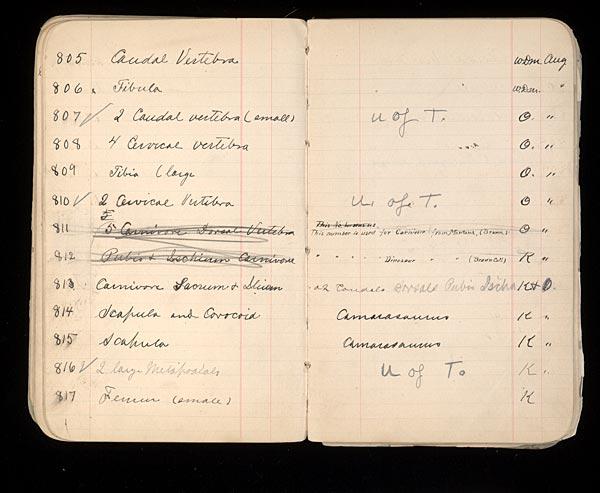 805 Caudal Vertebra W.D.M. Aug
806 " Fibula W.D.M. "
807 ✓ 2 Caudal vertebra (small) U of T. O. "
808 4 Cervical vertebra O. "
809 Tibia (large O. "
810 ✓ 2 Cervical Vertebra U. of. T. O "
811 5 Carnivore Dorsal Vertebra This number is used for Carnivore from Montana, (Brown) O "
812 Pubis & Ischium Carnivore " " " " " Dinosaur " " (Brown Coll) K "
813 Carnivore Sacrum & Ilium 22 Caudals dorsals Pubis Ischia K & O. "
814 Scapula and Coracoid Camarasaurus K "
815 Scapula Camarasaurus K "
816 ✓ 2 large Metapodals U of T. K "
817 Femur (small) K